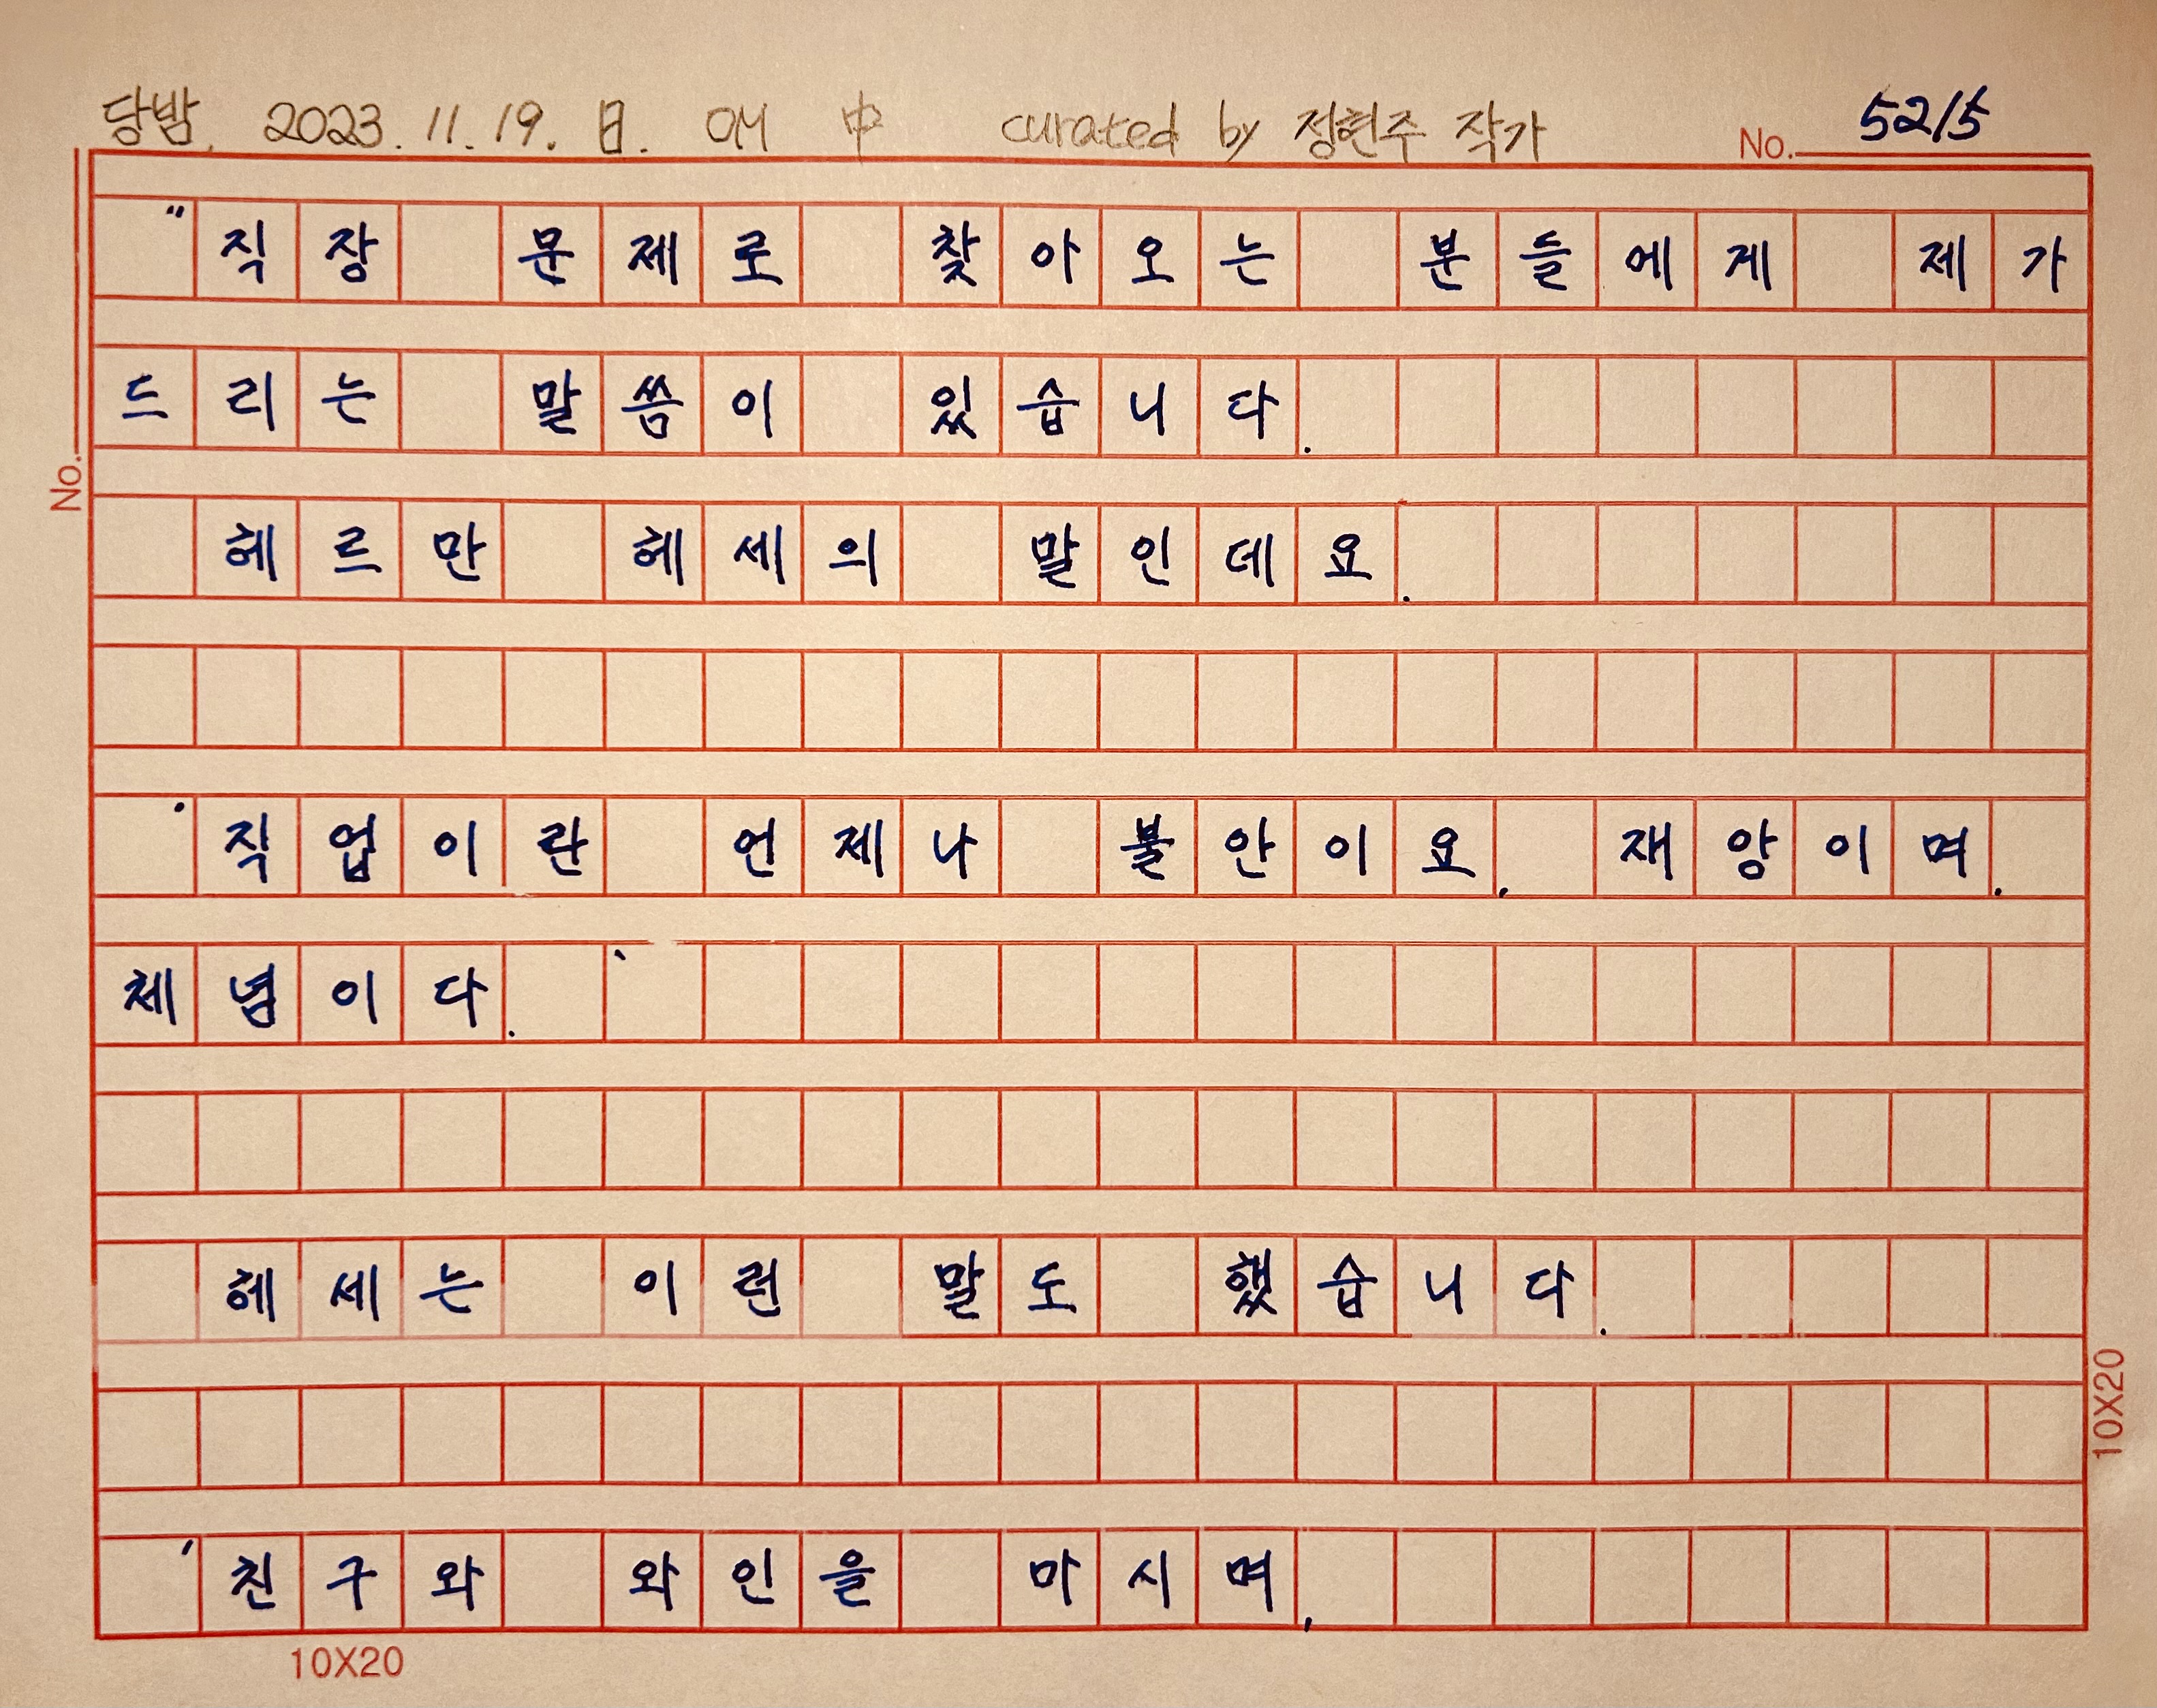 당밤. 2023. 11. 19. 日. OH 中 curated by 정현주 작가 No. 5215
"직장 문제로 찾아오는 분들에게 제가
드리는 말씀이 있습니다.
헤르만 헤세의 말인데요.
'직업이란 언제나 불안이요, 재앙이며,
체념이다.'
헤세는 이런 말도 했습니다.
'친구와 와인을 마시며,
No.
10X20
10X20